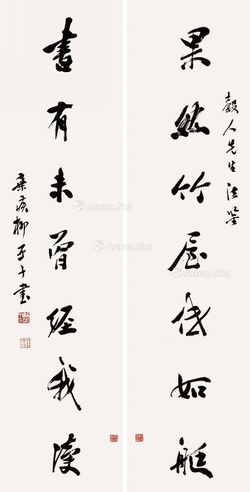 人先生法鑒
果然竹屋低如艇
書有未曾經我讀
柳子書
Artron.Net
Artron.Net
Artron.Net
Artron.Net